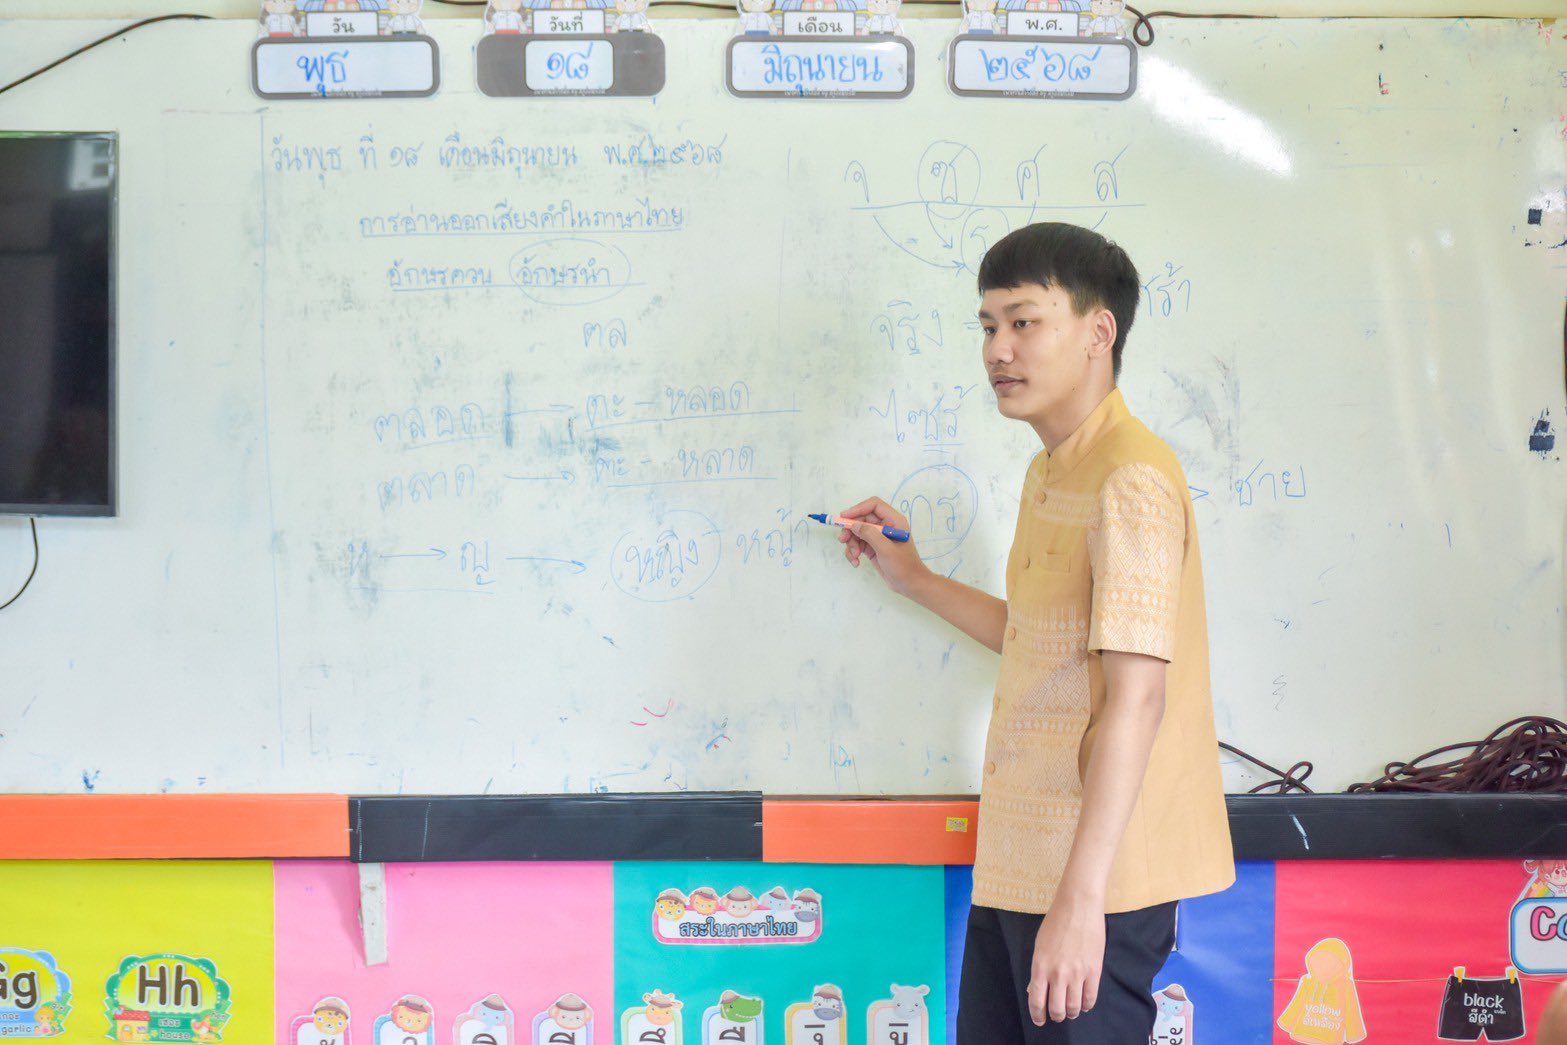 วัน
พุธ
วันที่
๑๘
เดือน
มิถุนายน
พ.ศ.
๒๕๖๘
วันพุธ ที่ ๑๘ เดือนมิถุนายน พ.ศ.๒๕๖๘
การอ่านออกเสียงคำในภาษาไทย
อักษรควบ อักษรนำ
ตล
ตลอด ตะ - หลอด
ตลาด ตะ - หลาด
ห ญ หญิง หญ้า
จ ซ ศ ส
ร
จริง
ไซร้
ทร
ชาย
สระในภาษาไทย
Gg
garlic
Hh
house
yellow
สีเหลือง
black
สีดำ